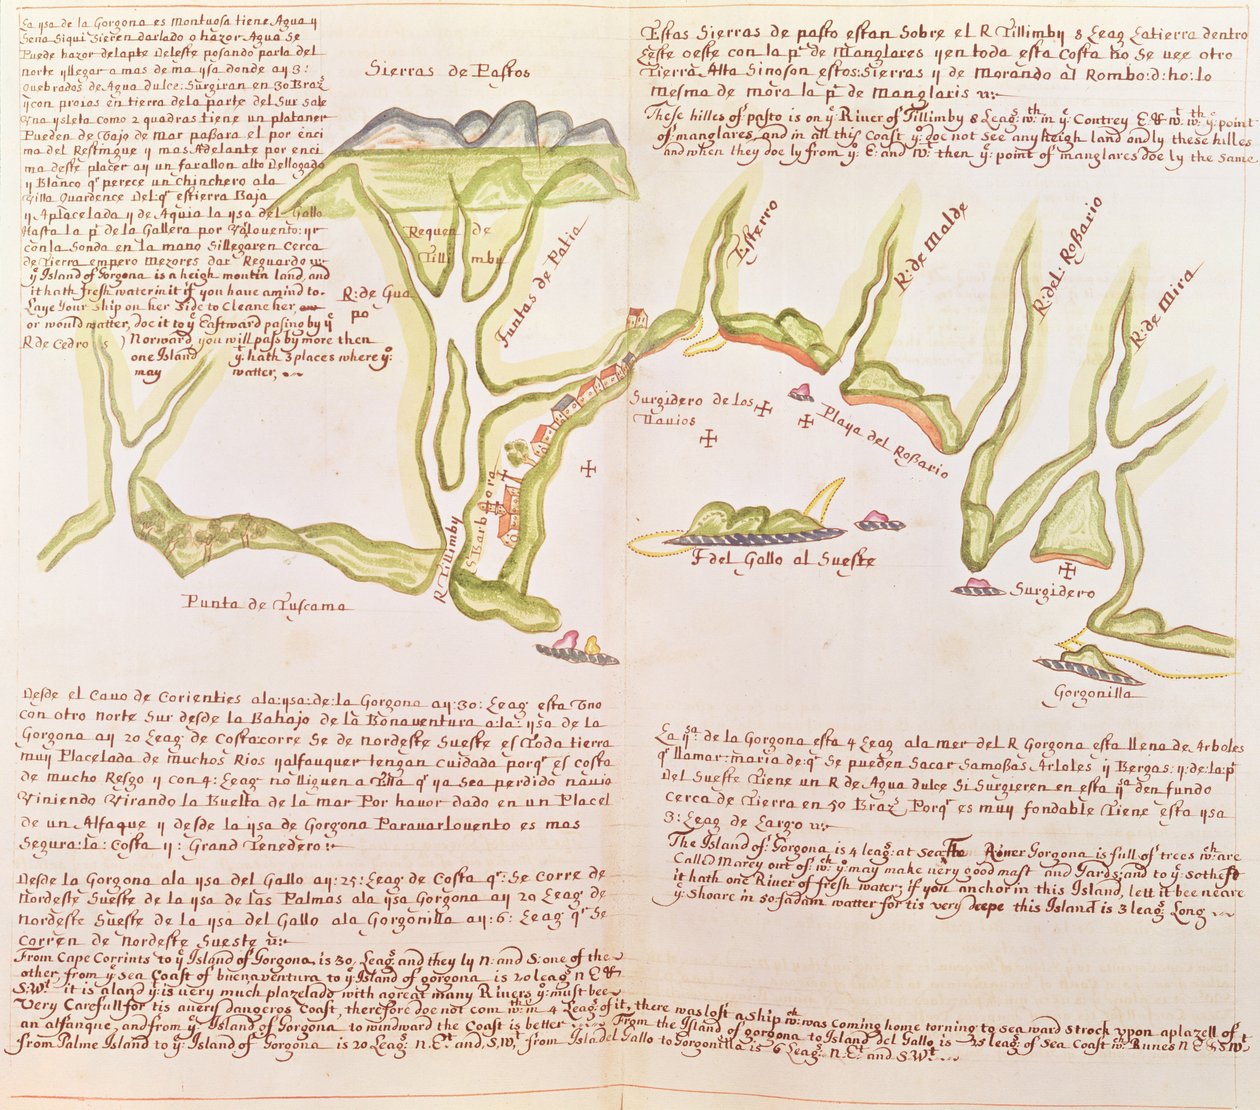 La ysa de la Gorgona es Montuosa tiene Agua y
Leña Si qui Sieren darlado o hazor Agua Se
Puede hazor delapte Deleste posando parla del
norte y llegar a mas de ma ysa donde ay 3:
quebrados de Agua dulce: Surgiran en 30 Braz
y con proias en tierra dela parte del Sur sale
Vna ysleta como 2 quadras tiene un plataner
Pueden de Vajo de Mar pasara el por enci
ma del Restingue y mas Adelante por enci
ma deste placer ay un farallon alto Dellogado
y Blanco qe perece un chinchero ala
Villa quardence Del qe estierra Baja
y Aplacelada y de Aquia la ysa del Gallo
Hasta la pta de la Gallera por Valouento: yr
con la Sonda en la mano Si llegaren cerca
de Tierra empero Mezores dar Reguardo
ye Island of Gorgona is a heigh mountin land, and
it hath fresh water in it if you have a mind to
Laye Your Ship on her Side to Clean her,
or would watter, doe it to ye Eastward pasing by ye
Norward you will pass by more then
one Island yt hath 3 places where yo
may watter,
R de Cedros
Sierras de Pastos
Estas Sierras de pasto estan Sobre el R Tillimby 8 Leag Latierra dentro
Leste oeste con la pta de Manglares y en toda esta Costa no se vee otro
Tierra Alta Sino son estos: Sierras y de Morando al Rombo: d: ho: lo
mesma de mora la pta de Manglaris
These hilles of pasto is on ye River of Tillimby 8 Leags wth in ye Contrey E & wt wth ye point
of manglares, and in all this Coast yo doe not See any heigh land only these hilles
and when they doe ly from ye E: and Wt then ye point of manglares doe ly the Same
Requen de
Tillimby
R: de Gua
po
Puntas de Patia
Esterro
R: de Malde
R: del: Rossario
R: de Mira
Surgidero de los
Navios
Playa del Rossario
R Tillimby
S Barbora
Punta de Tuscama
I del Gallo al Sueste
Surgidero
Gorgonilla
Desde el Cavo de Corienties ala: ysa: de: la Gorgona ay: 30: Leag esta Vno
con otro Norte Sur desde la Bahajo de la Bonaventura a: la: ysa de la
Gorgona ay 20 Leag de Costa: corre Se de Nordeste Sueste es Toda tierra
muy Placelada de muchos Rios y alfauquer tengan cuidado porqe es costa
de mucho Resgo y con 4: Leag no lliguen a Tra qe ya Sea perdido navio
Viniendo Virando la Buelta de la mar Por havor dado en un Placel
de un Alfaque y desde la ysa de Gorgona Paravarlovento es mas
Segura: la: Costa y: Grand Tenedero:
Desde la Gorgona ala ysa del Gallo ay: 25: Leag de Costa qe: Se Corre de
Nordeste Sueste de la ysa de las Palmas ala ysa Gorgona ay 20 Leag de
Nordeste Sueste de la ysa del Gallo ala Gorgonilla ay: 6: Leag qe Se
Corren de Nordeste Sueste
From Cape Corrints to ye Island of Gorgona is 30 Leags and they ly N: and S: one of the
other, from ye Sea Coast of buenaventura to ye Island of gorgona is 20 leags N Et &
S: Wt it is a land yt is very much plazelado with a great many Rivers yo: must bee
Very Carefull for tis a very dangeros Coast, therefore doe not com wth in 4 Leags of it, there was lost a Ship wch was coming home torning to sea ward strock vpon a plazell of
an alfanque, and from ye Island of Gorgona to windward the Coast is better From the Island of gorgona to Island del Gallo is 25 leags of Sea Coast wch Runes N E & S Wt
from Palme Island to ye Island of Gorgona is 20 Leags N. Et and, S, Wt from Isla del Gallo to Gorgonilla is 6 Leags N. Et and S Wt
La ysa: de la Gorgona esta 4 Leag ala mer del R Gorgona esta llena de Arboles
qe llamar: maria de: qe Se pueden Sacar Samossas Arloles y Bergas: y: de: la: pta
Del Sueste Tiene un R de Agua dulce Si Surgieren en esta ysa den fundo
Cerca de Tierra en 50 Braz Porqe es muy fondable Tiene esta ysa
3: Leag de Largo
The Island of Gorgona is 4 leags: at sea The River Gorgona is full of trees wch are
Called Marey out of wch yo may make very good mast and Yards, and to ye Sothest
it hath one River of fresh water; if you anchor in this Island, lett it bee neare
ye Shoare in 50 fadam watter for tis very deepe this Island is 3 leags Long